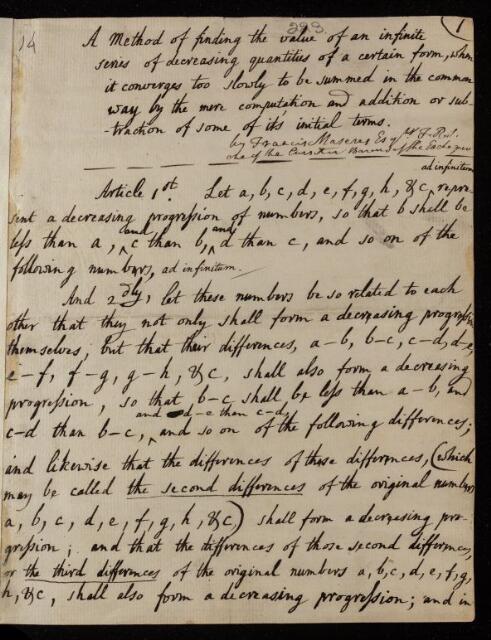 14
298
1
A Method of finding the value of an infinite
series of decreasing quantities of a certain form, when
it converges too slowly to be summed in the common
way by the mere computation and addition or sub-
-traction of some of it's initial terms.
by Francis Maseres Esqr. F.R.S.
ad infinitum
Article 1st. Let a, b, c, d, e, f, g, h, &c, repre-
sent a decreasing progression of numbers, so that b shall be
less than a, and c than b, and d than c, and so on of the
following numbers, ad infinitum.
And 2dly, let these numbers be so related to each
other that they not only shall form a decreasing progression
themselves, but that their differences, a-b, b-c, c-d, d-e,
e-f, f-g, g-h, &c, shall also form a decreasing
progression, so that b-c shall be less than a-b, and
c-d than b-c, and d-e than c-d, and so on of the following differences;
and likewise that the differences of those differences, (which
may be called the second differences of the original numbers
a, b, c, d, e, f, g, h, &c) shall form a decreasing pro-
gression; and that the differences of those second differences,
or the third differences of the original numbers a, b, c, d, e, f, g,
h, &c, shall also form a decreasing progression; and in